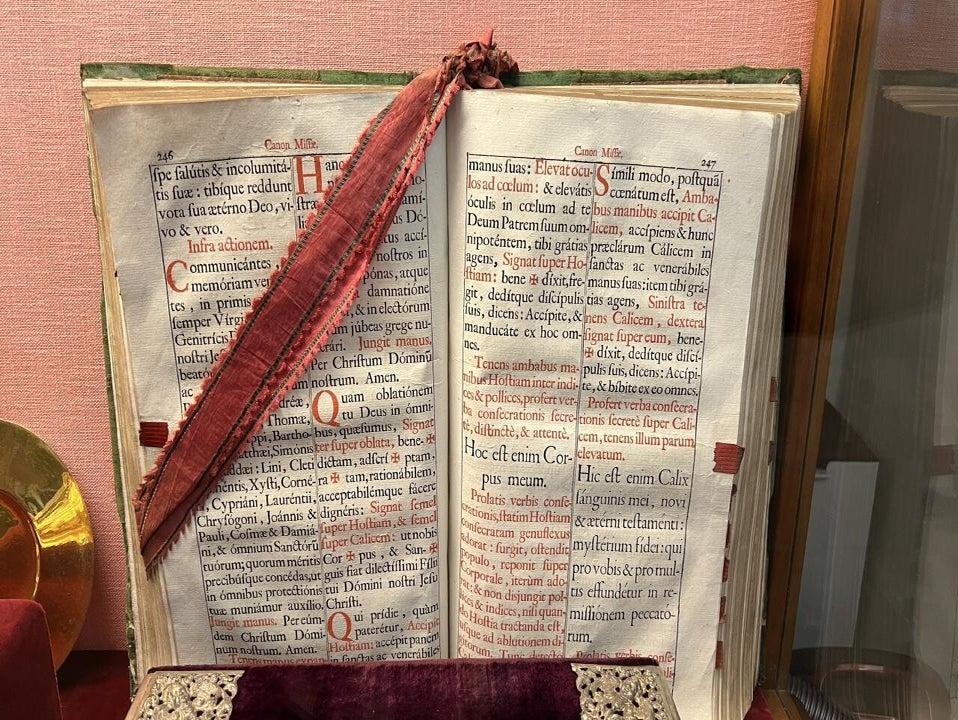 246
Canon Missæ.
ſpe ſalútis & incolumitá-
tis ſuæ : tibíque reddunt
vota ſua ætérno Deo, vi-
vo & vero.
Infra actionem.
Communicántes,
memóriam
tes, in primis
ſemper Virgi
Genitrícis
noſtri Je
beató
ac
dréæ,
Thomæ,
ppi, Bartho-
Simonis
ddæi : Lini, Cleti
méntis, Xyſti, Corné-
, Cypriáni, Lauréntii,
Chryſógoni, Joánnis &
Pauli, Coſmæ & Damiá-
ni, & ómnium Sanctórū
tuórum; quorum méritis
precibúſque concédas, ut
in ómnibus protectiónis
tuæ muniámur auxílio.
Jungit manus. Per eúm-
dem Chriſtum Dómi-
num noſtrum. Amen.
Tenens manus expan
Hanc
ſtræ
noſtros in
atque
damnatióne
& in electórum
júbeas grege nu-
erári. Jungit manus.
Per Chriſtum Dóminū
noſtrum. Amen.
Quam oblatiónem
tu Deus in ómni-
bus, quæſumus, Signat
ter ſuper oblata, bene-✠
dictam, adſcri ✠ ptam,
ra ✠ tam, rationábilem,
acceptabilémque fácere
dignéris : Signat ſemel
ſuper Hoſtiam, & ſemel
ſuper Calicem : ut nobis
Cor ✠ pus , & San-✠
guis fiat dilectíſſimi Fílii
tui Dómini noſtri Jeſu
Chriſti.
Qui prídie , quàm
paterétur, Accipit
Hoſtiam : accépit panem
in ſanctas ac venerábiles
Canon Missæ.
247
manus ſuas : Elevat ocu-
los ad cœlum : & elevátis
óculis in cœlum ad te
Deum Patrem ſuum om-
nipoténtem, tibi grátias
agens, Signat ſuper Ho-
ſtiam : bene ✠ díxit, fre-
git, dedítque diſcípulis
ſuis, dicens : Accípite, &
manducáte ex hoc om-
nes.
Tenens ambabus ma-
nibus Hoſtiam inter indi-
ces & pollices, profert ver-
ba conſecrationis ſecre-
tè, diſtinctè, & attentè.
Hoc eſt enim Cor-
pus meum.
Prolatis verbis conſe-
crationis, ſtatim Hoſtiam
conſecratam genuflexus
adorat : ſurgit, oſtendit
populo, reponit ſuper
Corporale, iterùm ado-
rat : & non disjungit pol-
es & indices, niſi quan-
do Hoſtia tractanda eſt,
uſque ad ablutionem di-
gitorum. Tunc detecto
Símili modo, poſtquā
cœnátum eſt, Amba-
bus manibus accipit Ca-
licem, accípiens & hunc
præclárum Cálicem in
ſanctas ac venerábiles
manus ſuas : item tibi grá-
tias agens, Siniſtra te-
nens Calicem , dextera
ſignat ſuper eum, bene-
✠ díxit, dedítque diſcí-
pulis ſuis, dicens : Accípi-
te, & bíbite ex eo omnes.
Profert verba conſecra-
tionis ſecretè ſuper Cali-
cem, tenens illum parum
elevatum.
Hic eſt enim Calix
ſánguinis mei , novi
& ætérni teſtaménti :
myſtérium fídei : qui
pro vobis & pro mul-
tis effundétur in re-
miſſiónem peccató-
rum.
Prolatis verbis conſe-